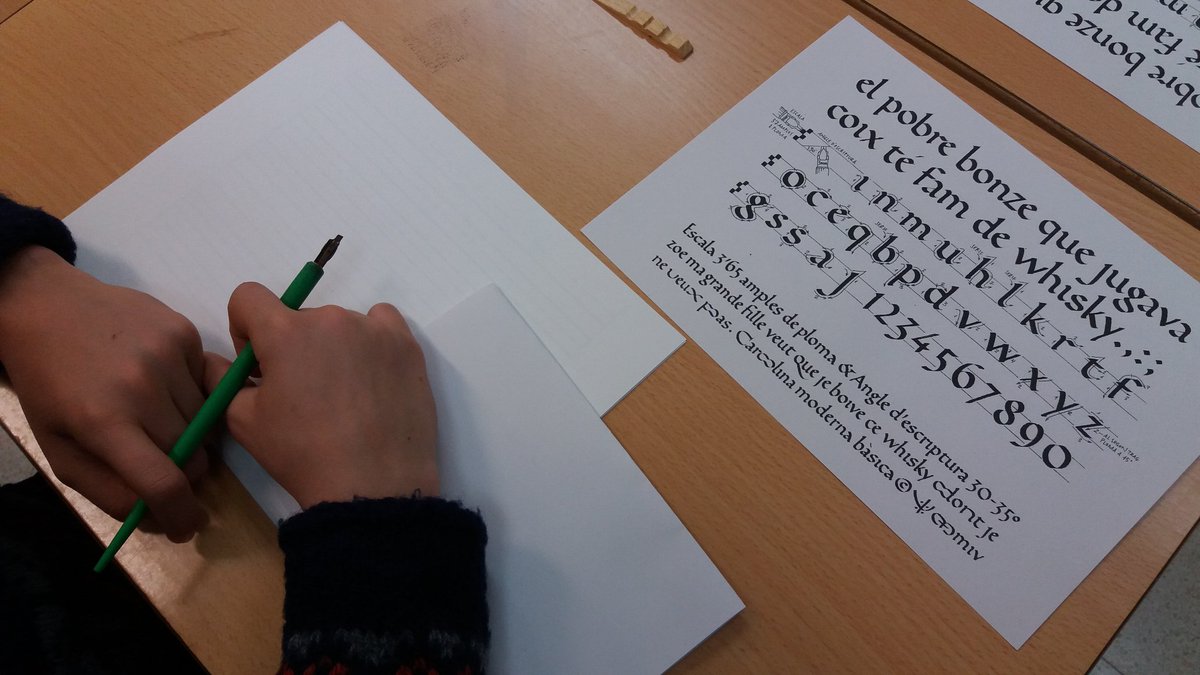 el pobre bonze que jugava
coix té fam de whisky.,:;
ESCALA
ANGLE D'ESCRIPTURA
ı n m u h l k r t f
o c e q b p d v w x y z
g s s a j 1234567890
Escala 3'65 amples de ploma & Angle d'escriptura 30-35º
zoe ma grande fille veut que je boive ce whisky dont je
ne veux pas. Carolina moderna bàsica ©